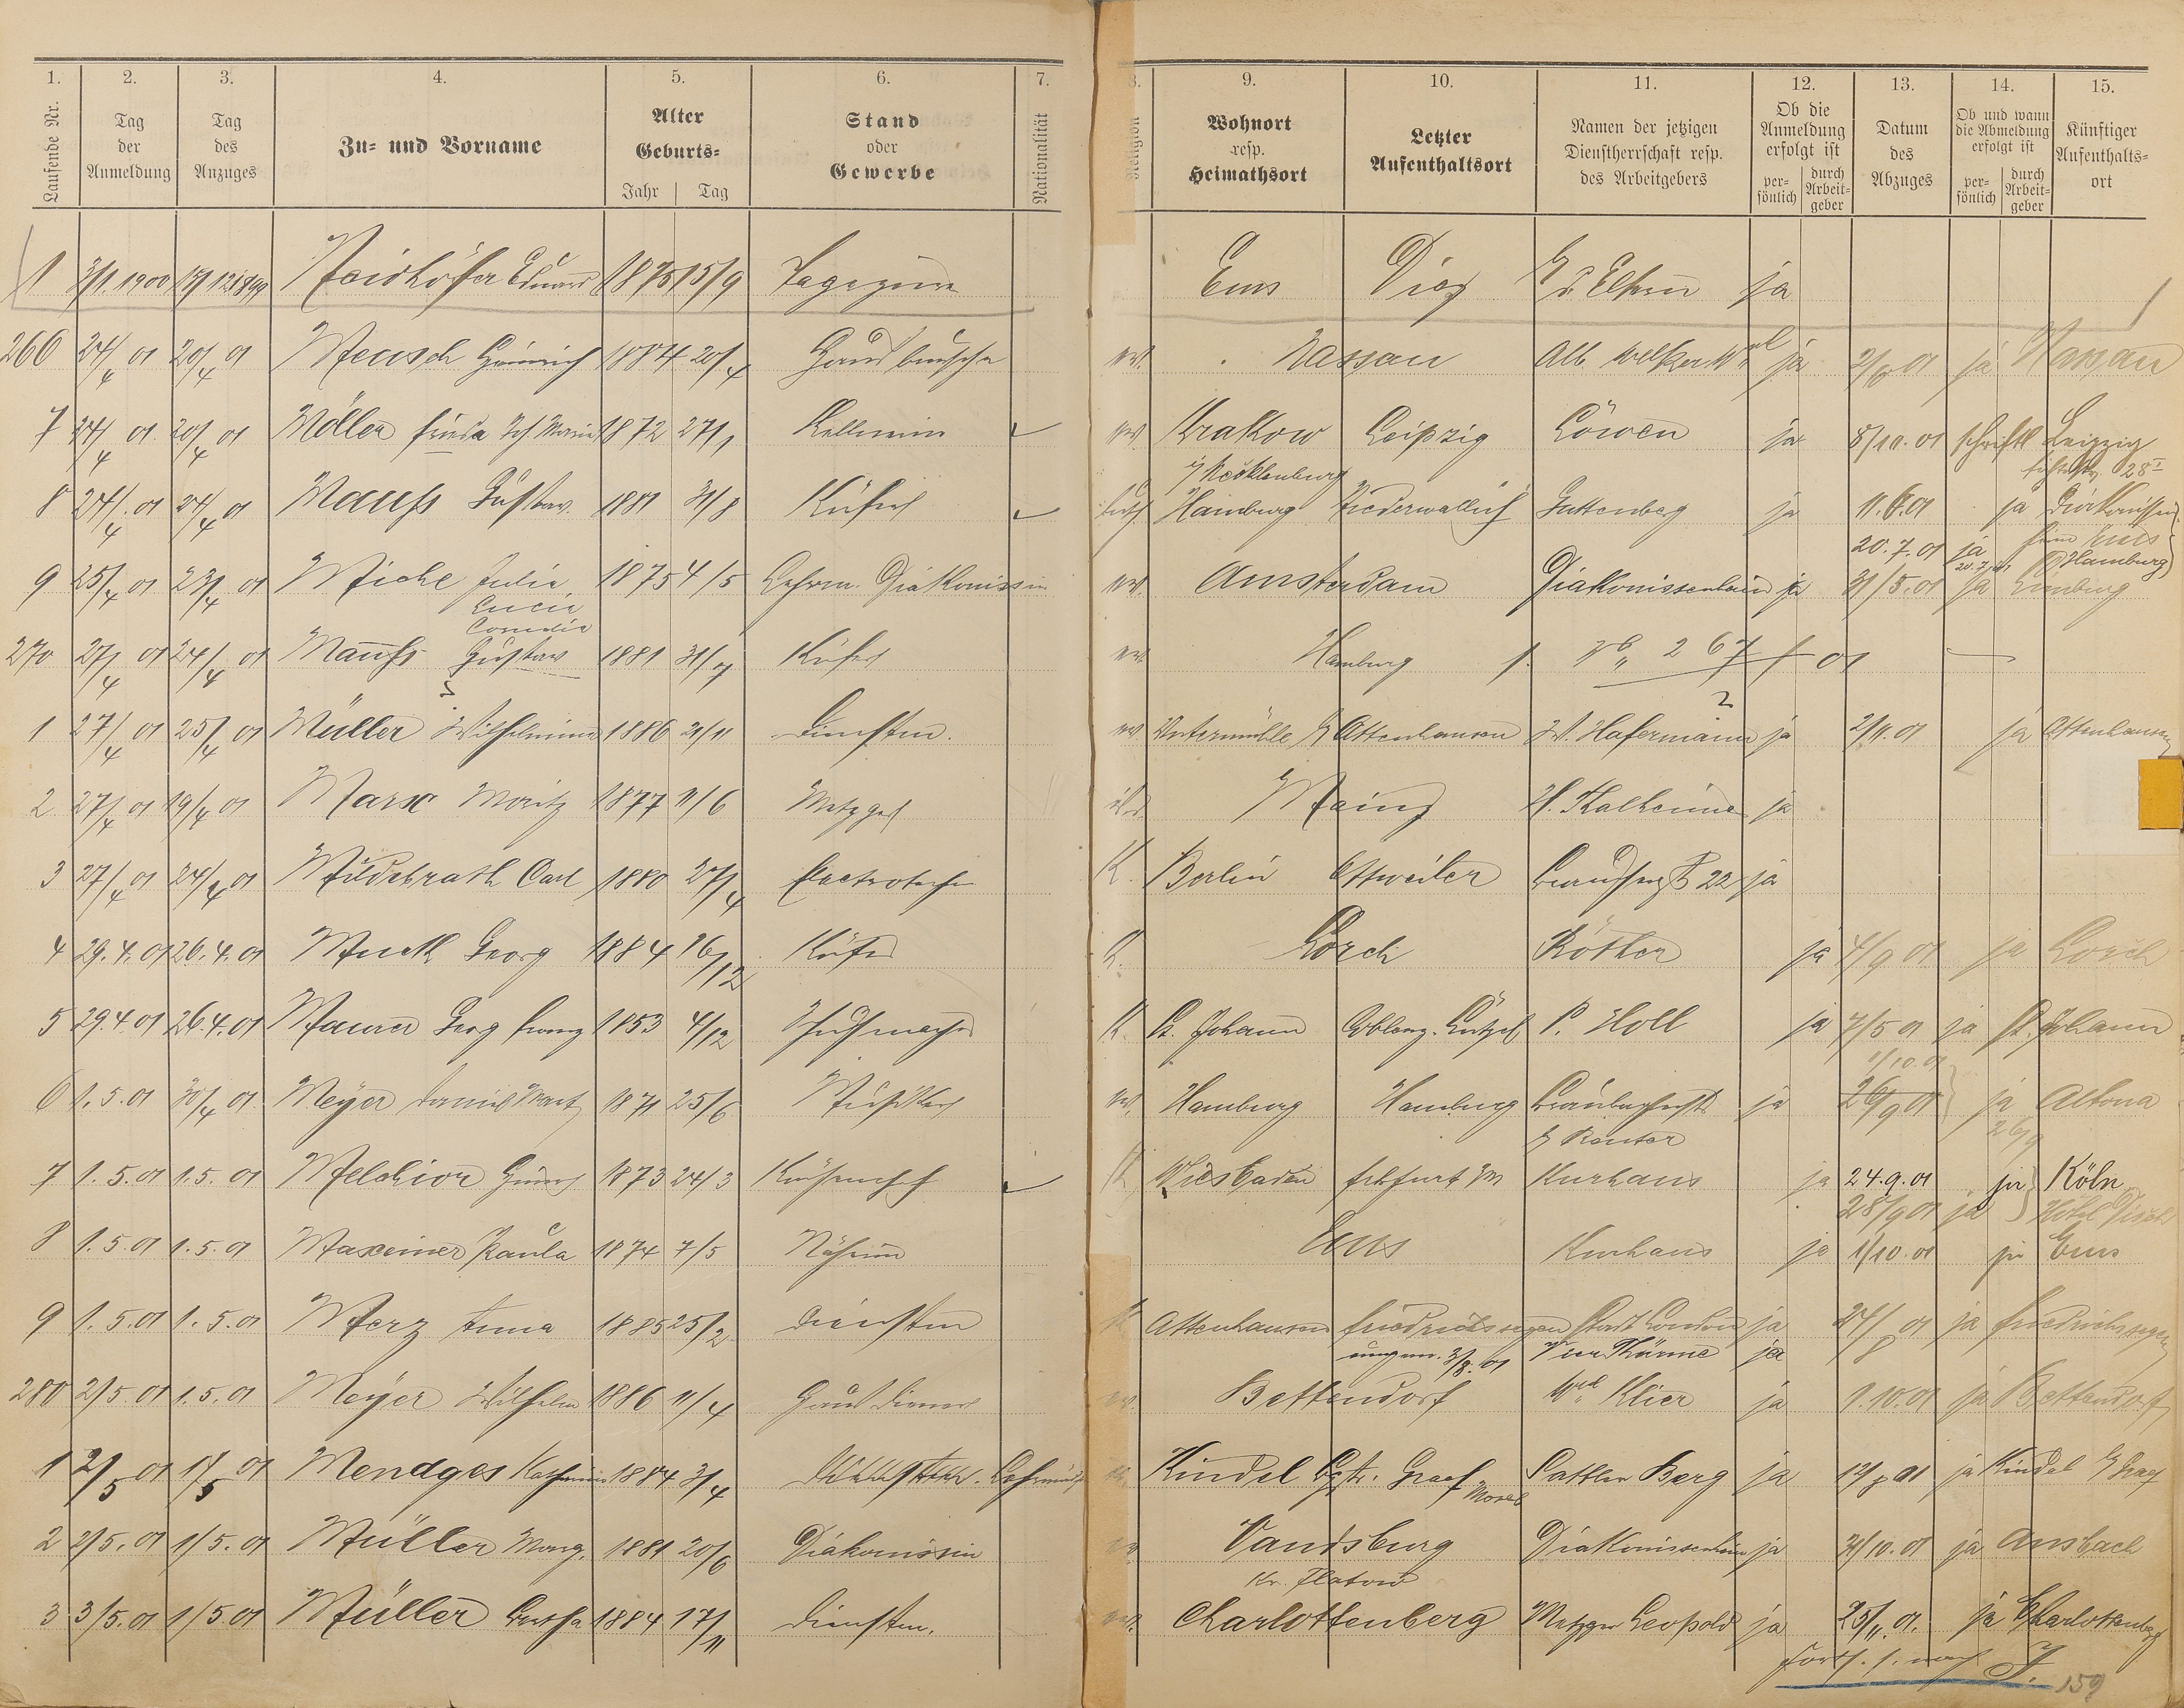 1. 2. 3. 4. 5. 6. 7. 8. 9. 10. 11. 12. 13. 14. 15.
Laufende Nr. Tag der Anmeldung Tag des Anzuges Zu- und Vorname Alter Geburts- Jahr Tag Stand oder Gewerbe Nationalität Religion Wohnort resp. Heimathsort Letzter Aufenthaltsort Namen der jetzigen Dienstherrschaft resp. des Arbeitgebers Ob die Anmeldung erfolgt ist per- sönlich durch Arbeit- geber Datum des Abzuges Ob und wann die Abmeldung erfolgt ist per- sönlich durch Arbeit- geber Künftiger Aufenthalts- ort
1 2/1. 1900 Neidhöfer Eduard 1875 15/9 Ems Diez ja
266 24/4 01 20/4 01 Mensch Heinrich 1884 20/4 Hausbursche ev. Nassau Alb. ja 2/6 01 ja Nassau
7 24/4 01 20/4 01 Möller Frieda Joh Maria 1872 27/1 Kellnerin ev. Krakow Leipzig Löwen ja 8/10. 01 schriftl Leipzig
i/ Mecklenburg 28 I
8 24/4 01 24/4 01 Maufs Gustav. 1881 31/8 Küfer luth Hamburg Niederwalluf Guttenberg ja 11.6.01 ja Diakonissen
20.7.01 ja Ems
20.7.01 Hamburg
9 25/4 01 23/4 01 Miche Julia 1875 4/5 Lehrm. Diakonissin ev. Amsterdam Diakonissenheim ja 31/5.01 ja Limburg
Lucie
Cornelia
270 27/4 01 24/4 01 Maufs Gustav 1881 31/7 Küfer ev. Hamburg f. No 267 f 01
1 27/4 01 25/4 01 Müller Wilhelmine 1886 21/11 Dienstm. ev. Untermühle b/ Attenhausen W. Hafermann ja 2/11. 01 ja Attenhausen
2 27/4 01 19/4 01 Marx Moritz 1877 11/6 Metzger isr. Mainz H. Kalheimer ja
3 27/4 01 24/4 01 Mildebrath Carl 1880 27/4 Electrotechn K. Berlin Ottweiler 22 ja
4 29.4.01 26.4.01 Muth Georg 1884 26/12 Küfer K. Lorch Köther ja 4/9 01 ja Lorch
5 29.4.01 26.4.01 Maurer Georg Franz 1853 4/12 Schuhmacher K. St. Johann Coblenz. Lützel P. Holl ja 7/5 01 ja St. Johann
1/10.01
6 1.5.01 30/4 01 Meyer Daniel 1871 25/6 Musiker ev. Hamburg Hamburg ja 26/9 01 ja Altona
b/ Reuter 26/9
7 1.5.01 1.5.01 Melchior 1873 24/3 K. Wiesbaden Frkfurt M Kurhaus ja 24.9.01 ja Köln
28/9 01 ja Hôtel Disch
8 1.5.01 1.5.01 Maxeiner Paula 1874 7/5 Näherin Ems Kurhaus ja 1/10.01 ja Ems
9 1.5.01 1.5.01 Merz Anna 1885 25/2 Dienstm K Attenhausen Friedrichssegen Stadt London ja 24/8 01 ja Friedrichssegen
umgem. 3/8. 01 Vier Thürme ja
280 2/5.01 1.5.01 Meyer Wilhelm 1886 11/4 Hausdiener ev. Bettendorf Wwe Klier ja 1.10.01 ja Bettendorf
1 2/5 01 1/5 01 Mendges Katharina 1884 3/4 Kindel b/Graef Sattler Berg ja 12/8 01 ja Kindel b/ Graef
Mosel
2 2/5.01 1/5.01 Müller Marg. 1881 20/6 Diakonissin ev. Vandsburg Diakonissenheim ja 31/10.01 ja Ansbach
Kr. Flatow
3 3/5.01 1/5.01 Müller Bertha 1884 17/11 Dienstm. ev. Charlottenberg Metzger Leopold ja 25/11.01. ja Charlottenberg
Forts. s. nach J.
159